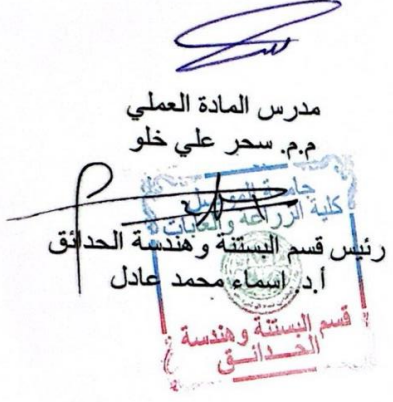 مدرس المادة العملي
م.م. سحر علي خلو
جامعة الموصل
كلية الزراعة والغابات
رئيس قسم البستنة وهندسة الحدائق
أ.د. اسماء محمد عادل
قسم البستنة وهندسة
الحدائـــق